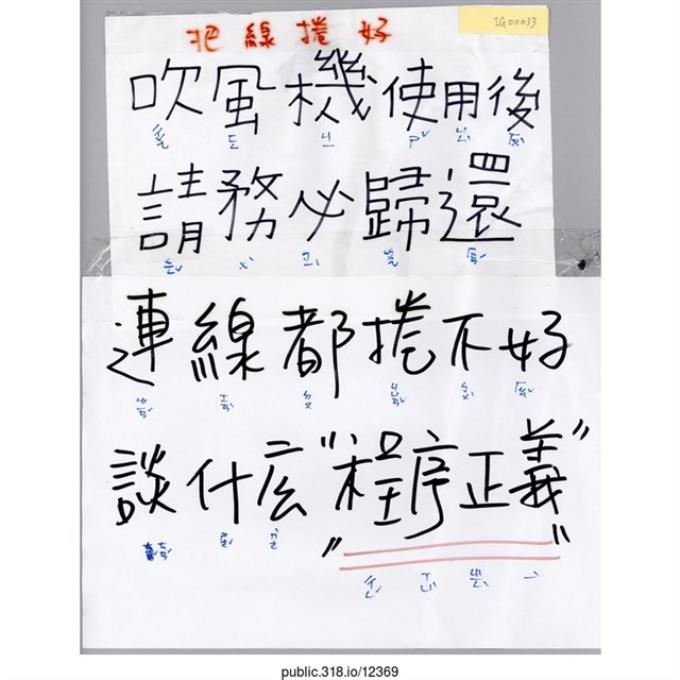 IG00033
把線捲好
吹風機使用後
請務必歸還
連線都捲不好
談什么“程序正義”
public.318.io/12369